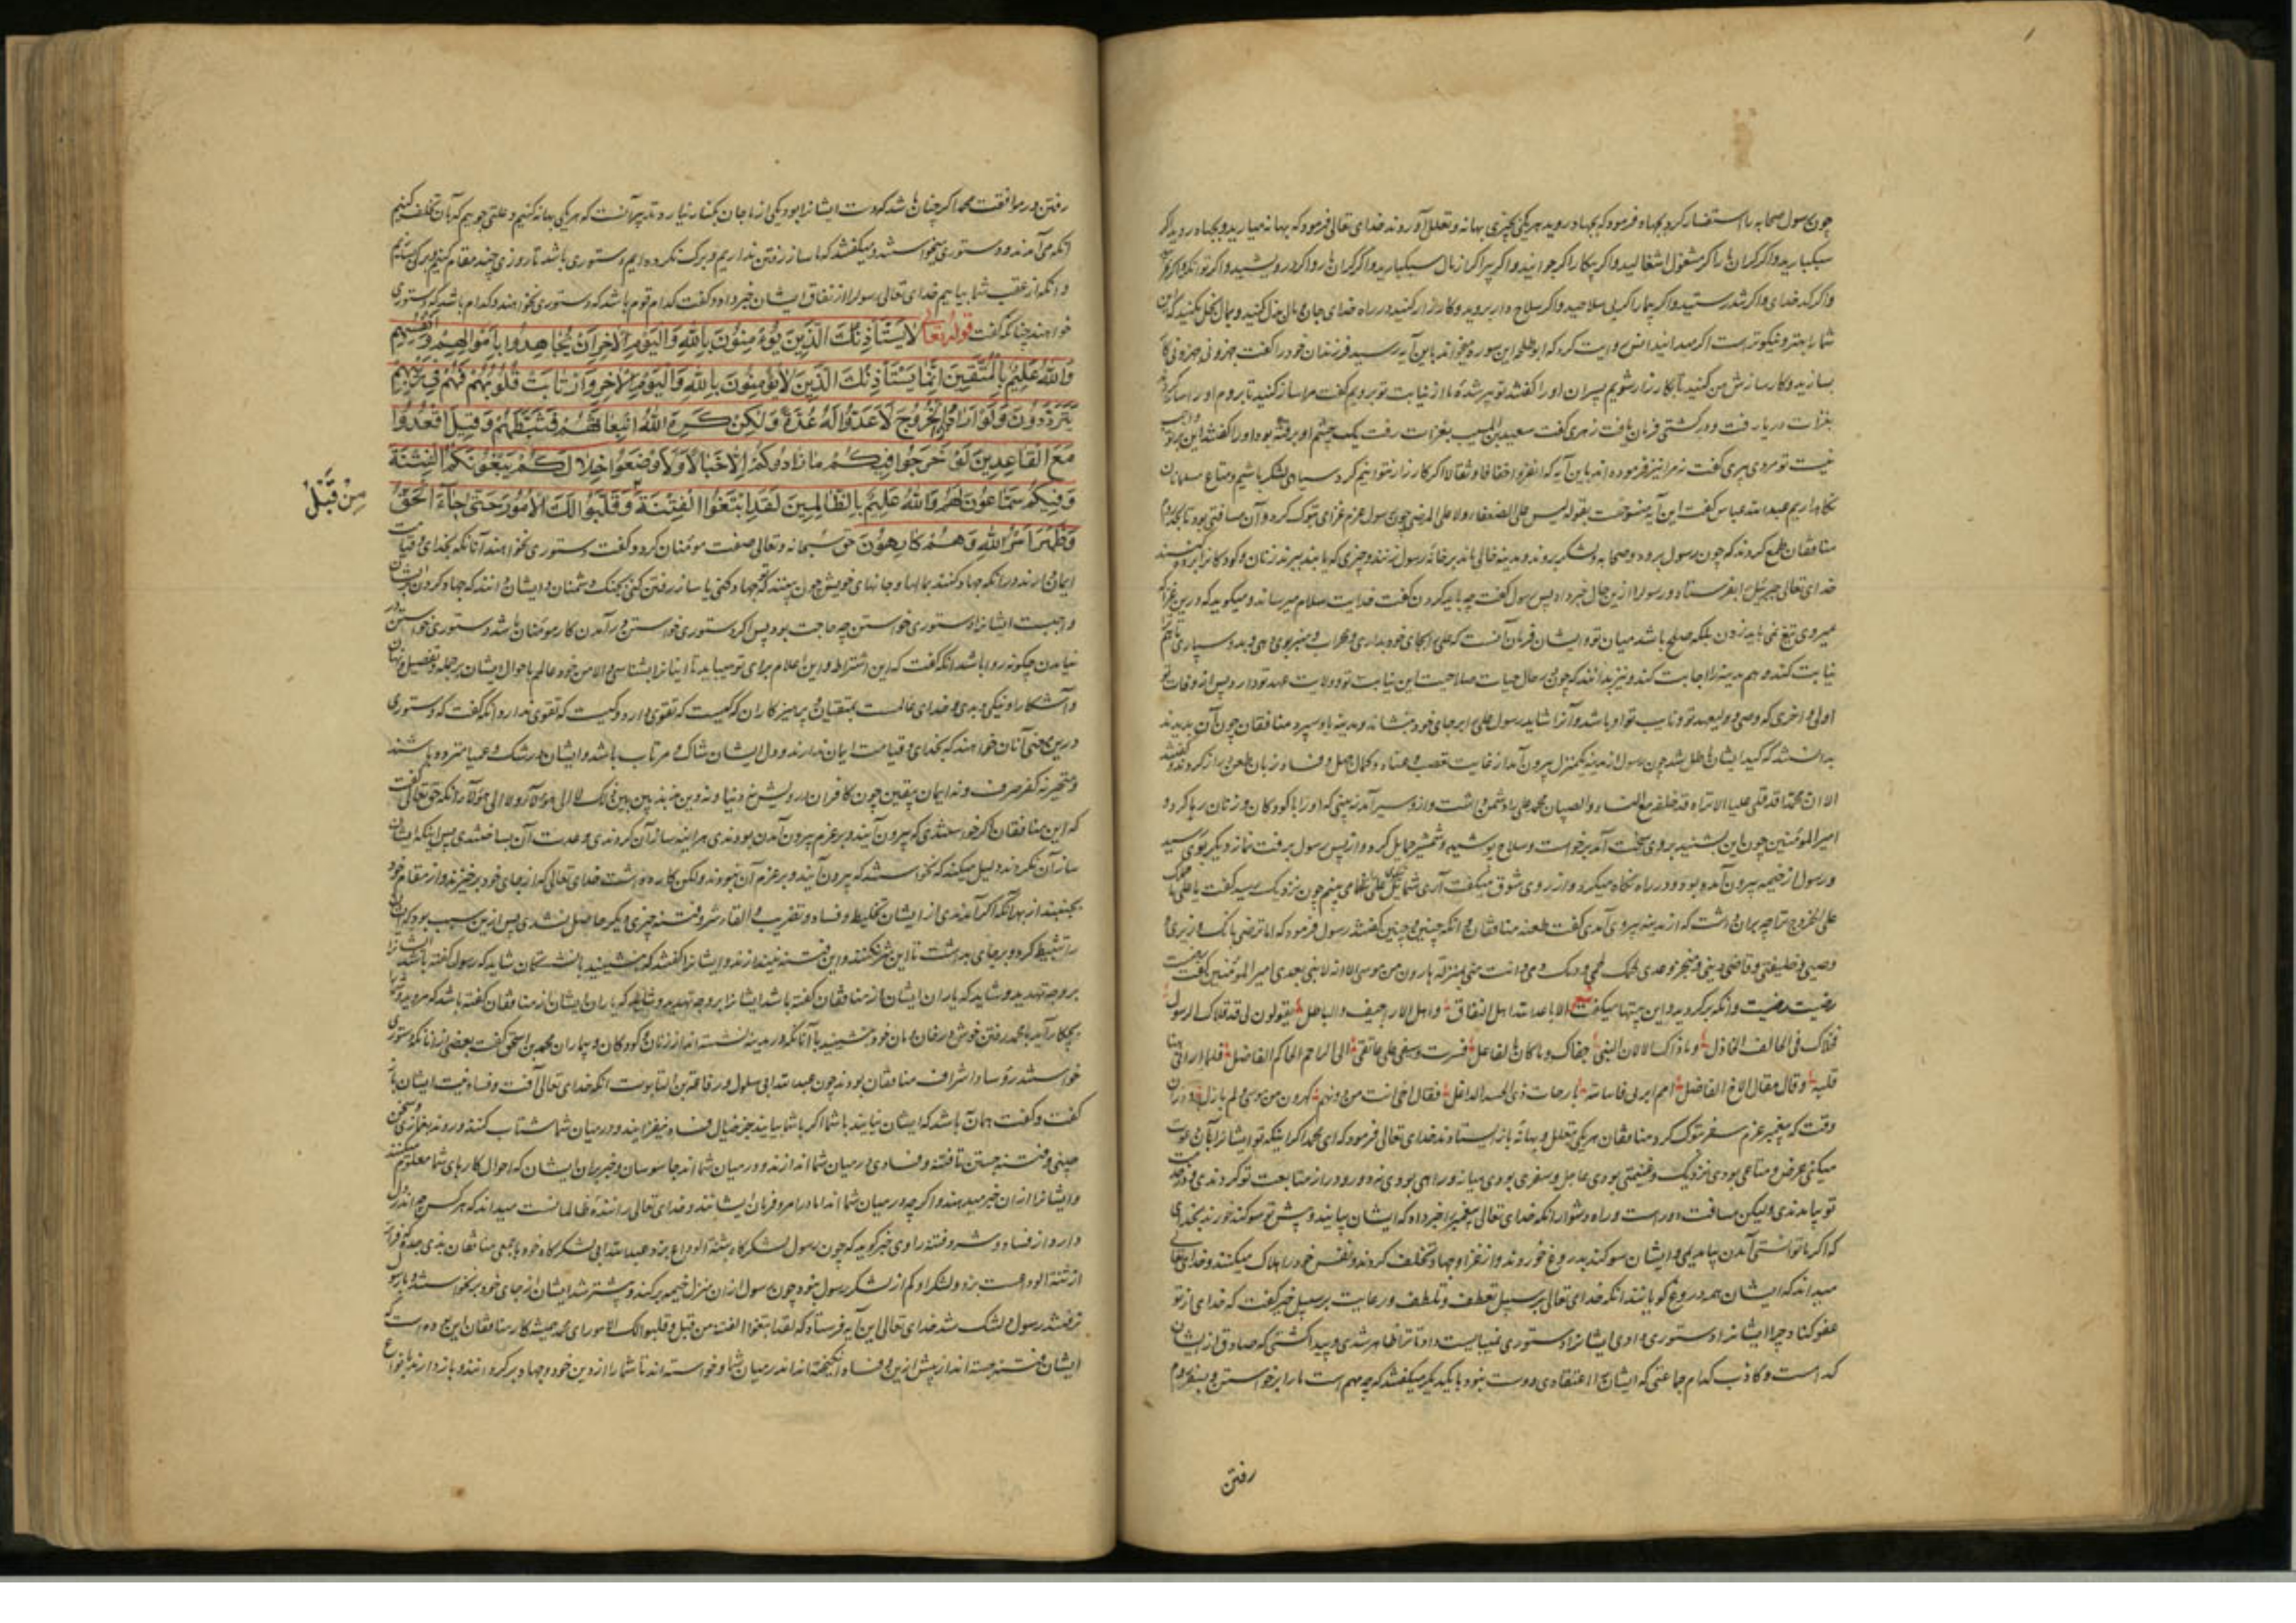 چون رسول صحابه را استنفار کرد بجهاد و فرمود که بجهاد روید هر یکی بچیزی بهانه و تعلل آوردند خدای تعالی فرمود که بهانه میارید و بجهاد روید اگر
سبکبارید و اگر گران بار اگر مشغول اشغالید و اگر بیکار اگر جوانید و اگر پیر اگر از مال سبکبارید و اگر گران بار و اگر درویشید و اگر توانگر
و اگر کدخدای و اگر تندرستید و اگر بیمار اگر بی سلاحید و اگر سلاح دار بروید و کارزار کنید در راه خدای جان و مال بذل کنید و بمال بخل مکنید که این
شما را بهتر و نیکوتر است اگر میدانید انس روایت کرد که ابوطلحه این سوره میخواند باین آیه رسید فرزندان خود را گفت جهزونی جهزونی کار
بسازید و کارسازش من کنید تا بکارزار شویم پسران او را گفتند تو پیر شدهٔ ما از نیابت تو برویم گفت مرا ساز کنید تا بروم او را ساز کردند
بغزات دریا رفت و در کشتی فرمان یافت زهری گفت سعید بن المسیب بغزات رفت یک چشم او برفته بود او را گفتند این بر تو واجب
نیست تو مردی پیری گفت نه مرا نیز فرموده اند باین آیه که انفروا خفافا و ثقالا اگر کارزار نتوانیم کرد سیاهی لشکر باشیم و متاع مسلمانان
نگاه داریم عبد الله عباس گفت این آیه منسوخست بقوله لیس علی الضعفاء ولا علی المرضی چون رسول عزم غزای تبوک کرد و آن مسافتی بود
منافقان طمع کردند که چون رسول برود و صحابه و لشکر بروند و مدینه خالی ماند بر خانهٔ رسول زنند و چیزی که یابند ببرند زنان و کودکان را
خدای تعالی جبرئیل را بفرستاد و رسول را ازین حال خبر داد پس رسول گفت چه باید کردن گفت خدایت سلام میرساند و میگوید که درین غزا که
میروی تیغ نمی باید زدن بلکه صلح باشد میان تو و ایشان فرمان آنست که علی را بجای خود بداری و محراب و منبر بوی دهی و مدینه بوی سپاری تا هم
نیابت کند و هم مدینه را اجابت کند و نیز بدانند که چون در حال حیات صلاحیت این نیابت تو و ولایت عهد تو دارد پس از وفات تو
اولی و احری که وصی و ولیعهد تو و نایب تو او باشد و آنرا شاید رسول علی را بر جای خود بنشاند و مدینه باو سپرد منافقان چون آن بدیدند
بدانستند که کید ایشان باطل شد چون رسول از مدینه یکمنزل بیرون آمد از غایت تعصب و عناد و کمال جهل و فساد زبان طعن دراز کردند و گفتند
الا ان محمدا قد قلی علیا الا تراه قد خلفه مع النساء و الصبیان محمد علی را دشمن داشت و ازو سیر آمد نه بینی که او را با کودکان و زنان رها کرد
امیر المؤمنین چون این بشنید بر وی سخت آمد برخاست و سلاح پوشید و شمشیر حمایل کرد و از پس رسول برفت نماز دیگر بوی رسید
و رسول از خیمه بیرون آمده بود و در راه نگاه میکرد و از روی شوق میگفت آری شمایل علی می بینم چون نزدیک رسید گفت یا علی ما
علی الخروج ترا چه بران داشت که از مدینه بیرون آمدی گفت طعنه منافقان و آنکه چنین و چنین گفتند رسول فرمود که اما ترضی بانک وزیری و
وصیی و خلیفتی و قاضی دینی و منجز وعدی لحمک لحمی و دمک دمی و انت منی بمنزلة هارون من موسی الا انه لا نبی بعدی امیر المؤمنین گفت
رضیت رضیت و آنگه برگردید و این بیتها میگفت الا باعد الله اهل النفاق و اهل الاراجیف و الباطل یقولون لی قد قلاک الرسول
فخلاک فی الخالف الخاذل و ما ذاک الا لان النبی جفاک و ما کان بالفاعل فسرت و سیفی علی عاتقی الی الراحم الحاکم الفاضل فلما رآنی هفا
قلبه و قال مقال الاخ الفاضل
وقت که پیغمبر عزم سفر تبوک کرد منافقان هر یکی بتعلل و بهانه باز ایستادند خدای تعالی فرمود که ای محمد اگر آنکه تو ایشانرا بآن دعوت
میکنی عرض و متاعی بودی نزدیک و غنیمتی بودی عاجل و سفری بودی میانه و راهی بودی نه دور و دراز متابعت تو کردندی و در خدمت
تو بیامدندی و لیکن مسافت دور است و راه دشوار آنگه خدای تعالی پیغمبر را خبر داد که ایشان بیایند و پیش تو سوگند خورند بخدای
که اگر ما توانستی آمدن بیامدیمی و ایشان سوگند بدروغ خورند و از غزا و جهاد تخلف کردند و نفس خود را هلاک میکنند و خدای تعالی
میداند که ایشان همه دروغ گویانند آنگه خدای تعالی بر سبیل تعطف و تلطف و رعایت بر سبیل خبر گفت که خدای از تو
عفو کناد چرا ایشانرا دستوری دادی ایشانرا دستوری نمیبایست داد تا ترا ظاهر شدی و پیدا گشتی که صادق از ایشان
که است و کاذب کدام جماعتی که ایشانرا اعتقادی درست نبود با یکدیگر میگفتند که چه مهم است ما را برخواستن و بسفر دوم
رفتن
رفتن و در موافقت محمد اگر چنان باشد که دست ایشانرا بود یکی از ما جان بکنار نیارد تدبیر آنست که هر یکی بهانه کنیم و علتی جوییم که بآن تخلف کنیم
آنگه می آمدند و دستوری میخواستند و میگفتند که ما ساز رفتن نداریم و برگ نکرده ایم دستوری باشد تا روزی چند مقام کنیم و برگ سازیم
و آنگه از عقب شما بیاییم خدای تعالی رسول را از نفاق ایشان خبر داد و گفت کدام قوم باشد که دستوری نخواهند و کدام باشد که دستوری
خواهند چنانکه گفت قوله تعالی لَا يَسْتَأْذِنُكَ الَّذِينَ يُؤْمِنُونَ بِاللَّهِ وَالْيَوْمِ الْآخِرِ أَنْ يُجَاهِدُوا بِأَمْوَالِهِمْ وَأَنْفُسِهِمْ
وَاللَّهُ عَلِيمٌ بِالْمُتَّقِينَ إِنَّمَا يَسْتَأْذِنُكَ الَّذِينَ لَا يُؤْمِنُونَ بِاللَّهِ وَالْيَوْمِ الْآخِرِ وَارْتَابَتْ قُلُوبُهُمْ فَهُمْ فِي رَيْبِهِمْ
يَتَرَدَّدُونَ وَلَوْ أَرَادُوا الْخُرُوجَ لَأَعَدُّوا لَهُ عُدَّةً وَلَكِنْ كَرِهَ اللَّهُ انْبِعَاثَهُمْ فَثَبَّطَهُمْ وَقِيلَ اقْعُدُوا
مَعَ الْقَاعِدِينَ لَوْ خَرَجُوا فِيكُمْ مَا زَادُوكُمْ إِلَّا خَبَالًا وَلَأَوْضَعُوا خِلَالَكُمْ يَبْغُونَكُمُ الْفِتْنَةَ
وَفِيكُمْ سَمَّاعُونَ لَهُمْ وَاللَّهُ عَلِيمٌ بِالظَّالِمِينَ لَقَدِ ابْتَغَوُا الْفِتْنَةَ وَقَلَّبُوا لَكَ الْأُمُورَ حَتَّى جَاءَ الْحَقُّ
مِنْ قَبْلُ
وَظَهَرَ أَمْرُ اللَّهِ وَهُمْ كَارِهُونَ حق سبحانه و تعالی صفت مومنان کرد و گفت دستوری نخواهند آنانکه بخدای و قیامت
ایمان دارند در آنکه جهاد کنند بمالها و جانهای خویش چون بینند که تجهاد کنی یا ساز رفتن کنی بجنگ دشمنان و ایشان دانند که جهاد کردن بر ایشان
واجبست ایشانرا دستوری خواستن چه حاجت بود پس اگر دستوری خواستن در آمدن کار مومنان باشد دستوری خواستن در
نیامدن چگونه روا باشد آنگه گفت که این اشتراط و این اعلام برای تو میباید تا اینانرا بشناسی و الا من خود عالمم باحوال ایشان بر جمله و تفصیل و نهان
و آشکارا و نیکی و بدی و خدای عالمست بمتقیان و پرهیزکاران که کیست که تقوی دارد و کیست که تقوی ندارد آنگه گفت که دستوری
درین معنی آنان خواهند که بخدای و قیامت ایمان ندارند و دل ایشان شاک و مرتاب باشد و ایشان در شک و عمیا متردد باشند
و متحیر نه کفر صرف و نه ایمان بیقین چون کافران درویش نه دنیا و نه دین مذبذبین بین ذلک لا الی هؤلاء و لا الی هؤلاء آنگه حق تعالی گفت
که این منافقان اگر خواستندی که بیرون آیند و بر عزم بیرون آمدن بودندی هر آینه ساز آن کردندی و عدت آن بساختندی پس اینکه ایشان
ساز آن نکردند دلیل میکند که نخواستند که بیرون آیند و بر عزم آن نبودند و لکن کاره داشت خدای تعالی که از جای خود برخیزند و از مقام خود
بجنبند از بهر آنکه اگر آمدندی از ایشان تخلیط و فساد و تضریب و القاء شر و فتنه چیزی دیگر حاصل نشدی پس ازین سبب بود که ایشان
را تثبیط کرد و بر جای بداشت تا این شر نکنند و این فتنه نیندازند و ایشانرا گفتند که بنشینید با نشستگان شاید که رسول گفته باشد ایشانرا
بر وجه تهدید و شاید که یاران ایشان از منافقان گفته باشد ایشانرا بر وجه تهدید و شاید که یاران ایشان از منافقان گفته باشد که مروید و شما
بچکار آید با محمد رفتن خوش در خان و مان خود بنشینید با آنانکه در مدینه نشسته اند از زنان و کودکان و بیماران محمد بن اسحق گفت بعضی از آنانکه دستوری
خواستند رؤسا و اشراف منافقان بودند چون عبد الله ابی سلول و رفاعة بن التابوت آنگه خدای تعالی آفت و فساد نیت ایشان باز
گفت و گفت همان به باشد که ایشان نیایند با شما اگر با شما بیایند جز خبال و فساد نیفزایند و در میان شما شتاب کنند و روند بغمازی و سخن
چینی و فتنه جستن تا فتنه و فسادی در میان شما اندازند و در میان شما اند جاسوسان و خبربران ایشان که احوال کارهای شما معلوم میکنند
و ایشانرا از آن خبر میدهند و اگر چه در میان شما اند اما در امر و فرمان ایشانند و خدای تعالی دانندهٔ ظالمانست میداند که هر کس چه اندر دل
دارد از فساد و شر و فتنه راوی خبر گوید که چون رسول لشکرگاه بثنیة الوداع بزد عبد الله ابی لشکرگاه خود با جمعی منافقان بذی جده فراتر
از ثنیة الوداع بزد و لشکر او کم از لشکر رسول نبود چون رسول از آن منزل خیمه برکند و پیشتر شد ایشان از جای خود برنخواستند و با رسول
نرفتند رسول دلتنگ شد خدای تعالی این آیه فرستاد که لقد ابتغوا الفتنة من قبل و قلبوا لک الامور ای محمد همیشه کار منافقان این بوده است که
ایشان فتنه جسته اند از پیش ازین و فساد انگیخته اند اندر میان شما و خواسته اند تا شما را از دین خود و جهاد برگردانند و باز دارند بانواع